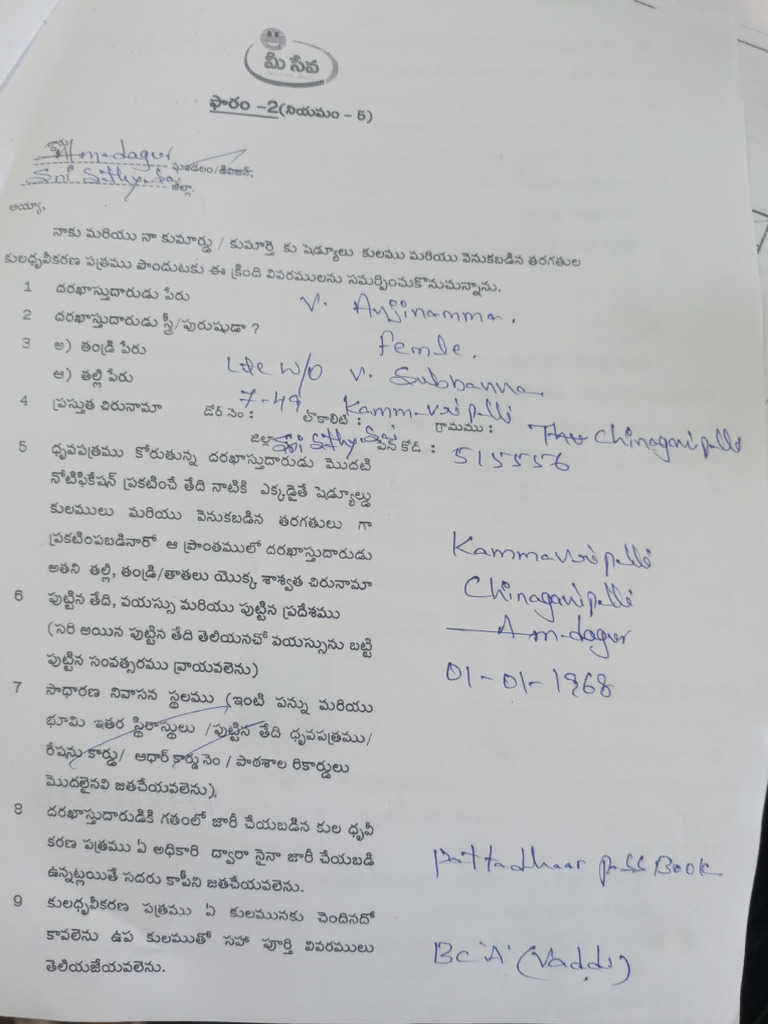 మీ సేవ
ఫారం -2(నియమం - 5)
Am-dagur మండలం/డివిజన్,
Sri Sathya Sai జిల్లా.
అయ్యా,
నాకు మరియు నా కుమార్తు / కుమార్తె కు షెడ్యూలు కులము మరియు వెనుకబడిన తరగతుల
కులధృవీకరణ పత్రము పొందుటకు ఈ క్రింది వివరములను సమర్పించుకొనుచున్నాను.
1 దరఖాస్తుదారుడు పేరు V. Anjinamma.
2 దరఖాస్తుదారుడు స్త్రీ/పురుషుడా ? Female.
3 అ) తండ్రి పేరు
ఆ) తల్లి పేరు Late W/o V. Subbanna
4 ప్రస్తుత చిరునామా డోర్ నెం : 7-49 లొకాలిటి : Kammavaripalli గ్రామము : Chinaganipalli
జిల్లా Sri Sathya Sai పిన్ కోడ్ : 515556
5 ధృవపత్రము కోరుతున్న దరఖాస్తుదారుడు మొదటి
నోటిఫికేషన్ ప్రకటించే తేది నాటికి ఎక్కడైతే షెడ్యూల్డు
కులములు మరియు వెనుకబడిన తరగతులు గా
ప్రకటింపబడినారో ఆ ప్రాంతములో దరఖాస్తుదారుడు Kammavaripalli
అతని తల్లి, తండ్రి/తాతలు యొక్క శాశ్వత చిరునామా Chinaganipalli
6 పుట్టిన తేది, వయస్సు మరియు పుట్టిన ప్రదేశము Am-dagur
(సరి అయిన పుట్టిన తేది తెలియనచో వయస్సును బట్టి
పుట్టిన సంవత్సరము వ్రాయవలెను) 01-01-1968
7 సాధారణ నివాసన స్థలము (ఇంటి పన్ను మరియు
భూమి ఇతర స్థిరాస్థులు /పుట్టిన తేది ధృవపత్రము/
రేషను కార్డు/ ఆధార్ కార్డు నెం / పాఠశాల రికార్డులు
మొదలైనవి జతచేయవలెను).
8 దరఖాస్తుదారుడికి గతంలో జారీ చేయబడిన కుల ధృవీ
కరణ పత్రము ఏ అధికారి ద్వారా నైనా జారీ చేయబడి Pattadhaar Pass Book
ఉన్నట్లయితే సదరు కాపీని జతచేయవలెను.
9 కులధృవీకరణ పత్రము ఏ కులమునకు చెందినదో
కావలెను ఉప కులముతో సహా పూర్తి వివరములు BC 'A' (Vaddi)
తెలియజేయవలెను.